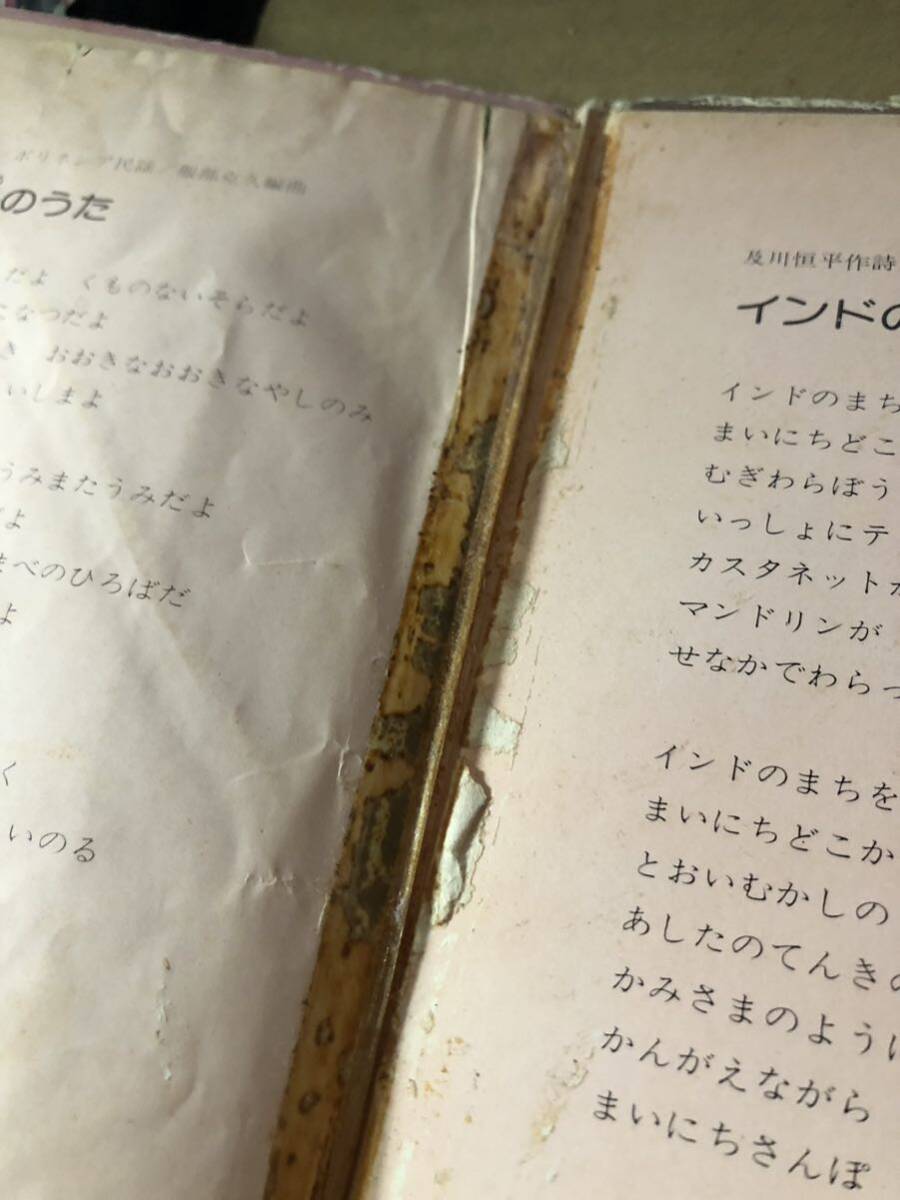 ポリネシア民謡/服部克久編曲
のうた
だよ くものないそらだよ
なつだよ
き おおきなおおきなやしのみ
いしまよ
うみまたうみだよ
よ
べのひろばだ
よ
く
いのる
及川恒平作詩
インドの
インドのまち
まいにちどこ
むぎわらぼう
いっしょにテ
カスタネットが
マンドリンが
せなかでわらっ
インドのまちを
まいにちどこか
とおいむかしの
あしたのてんきの
かみさまのように
かんがえながら
まいにちさんぽ